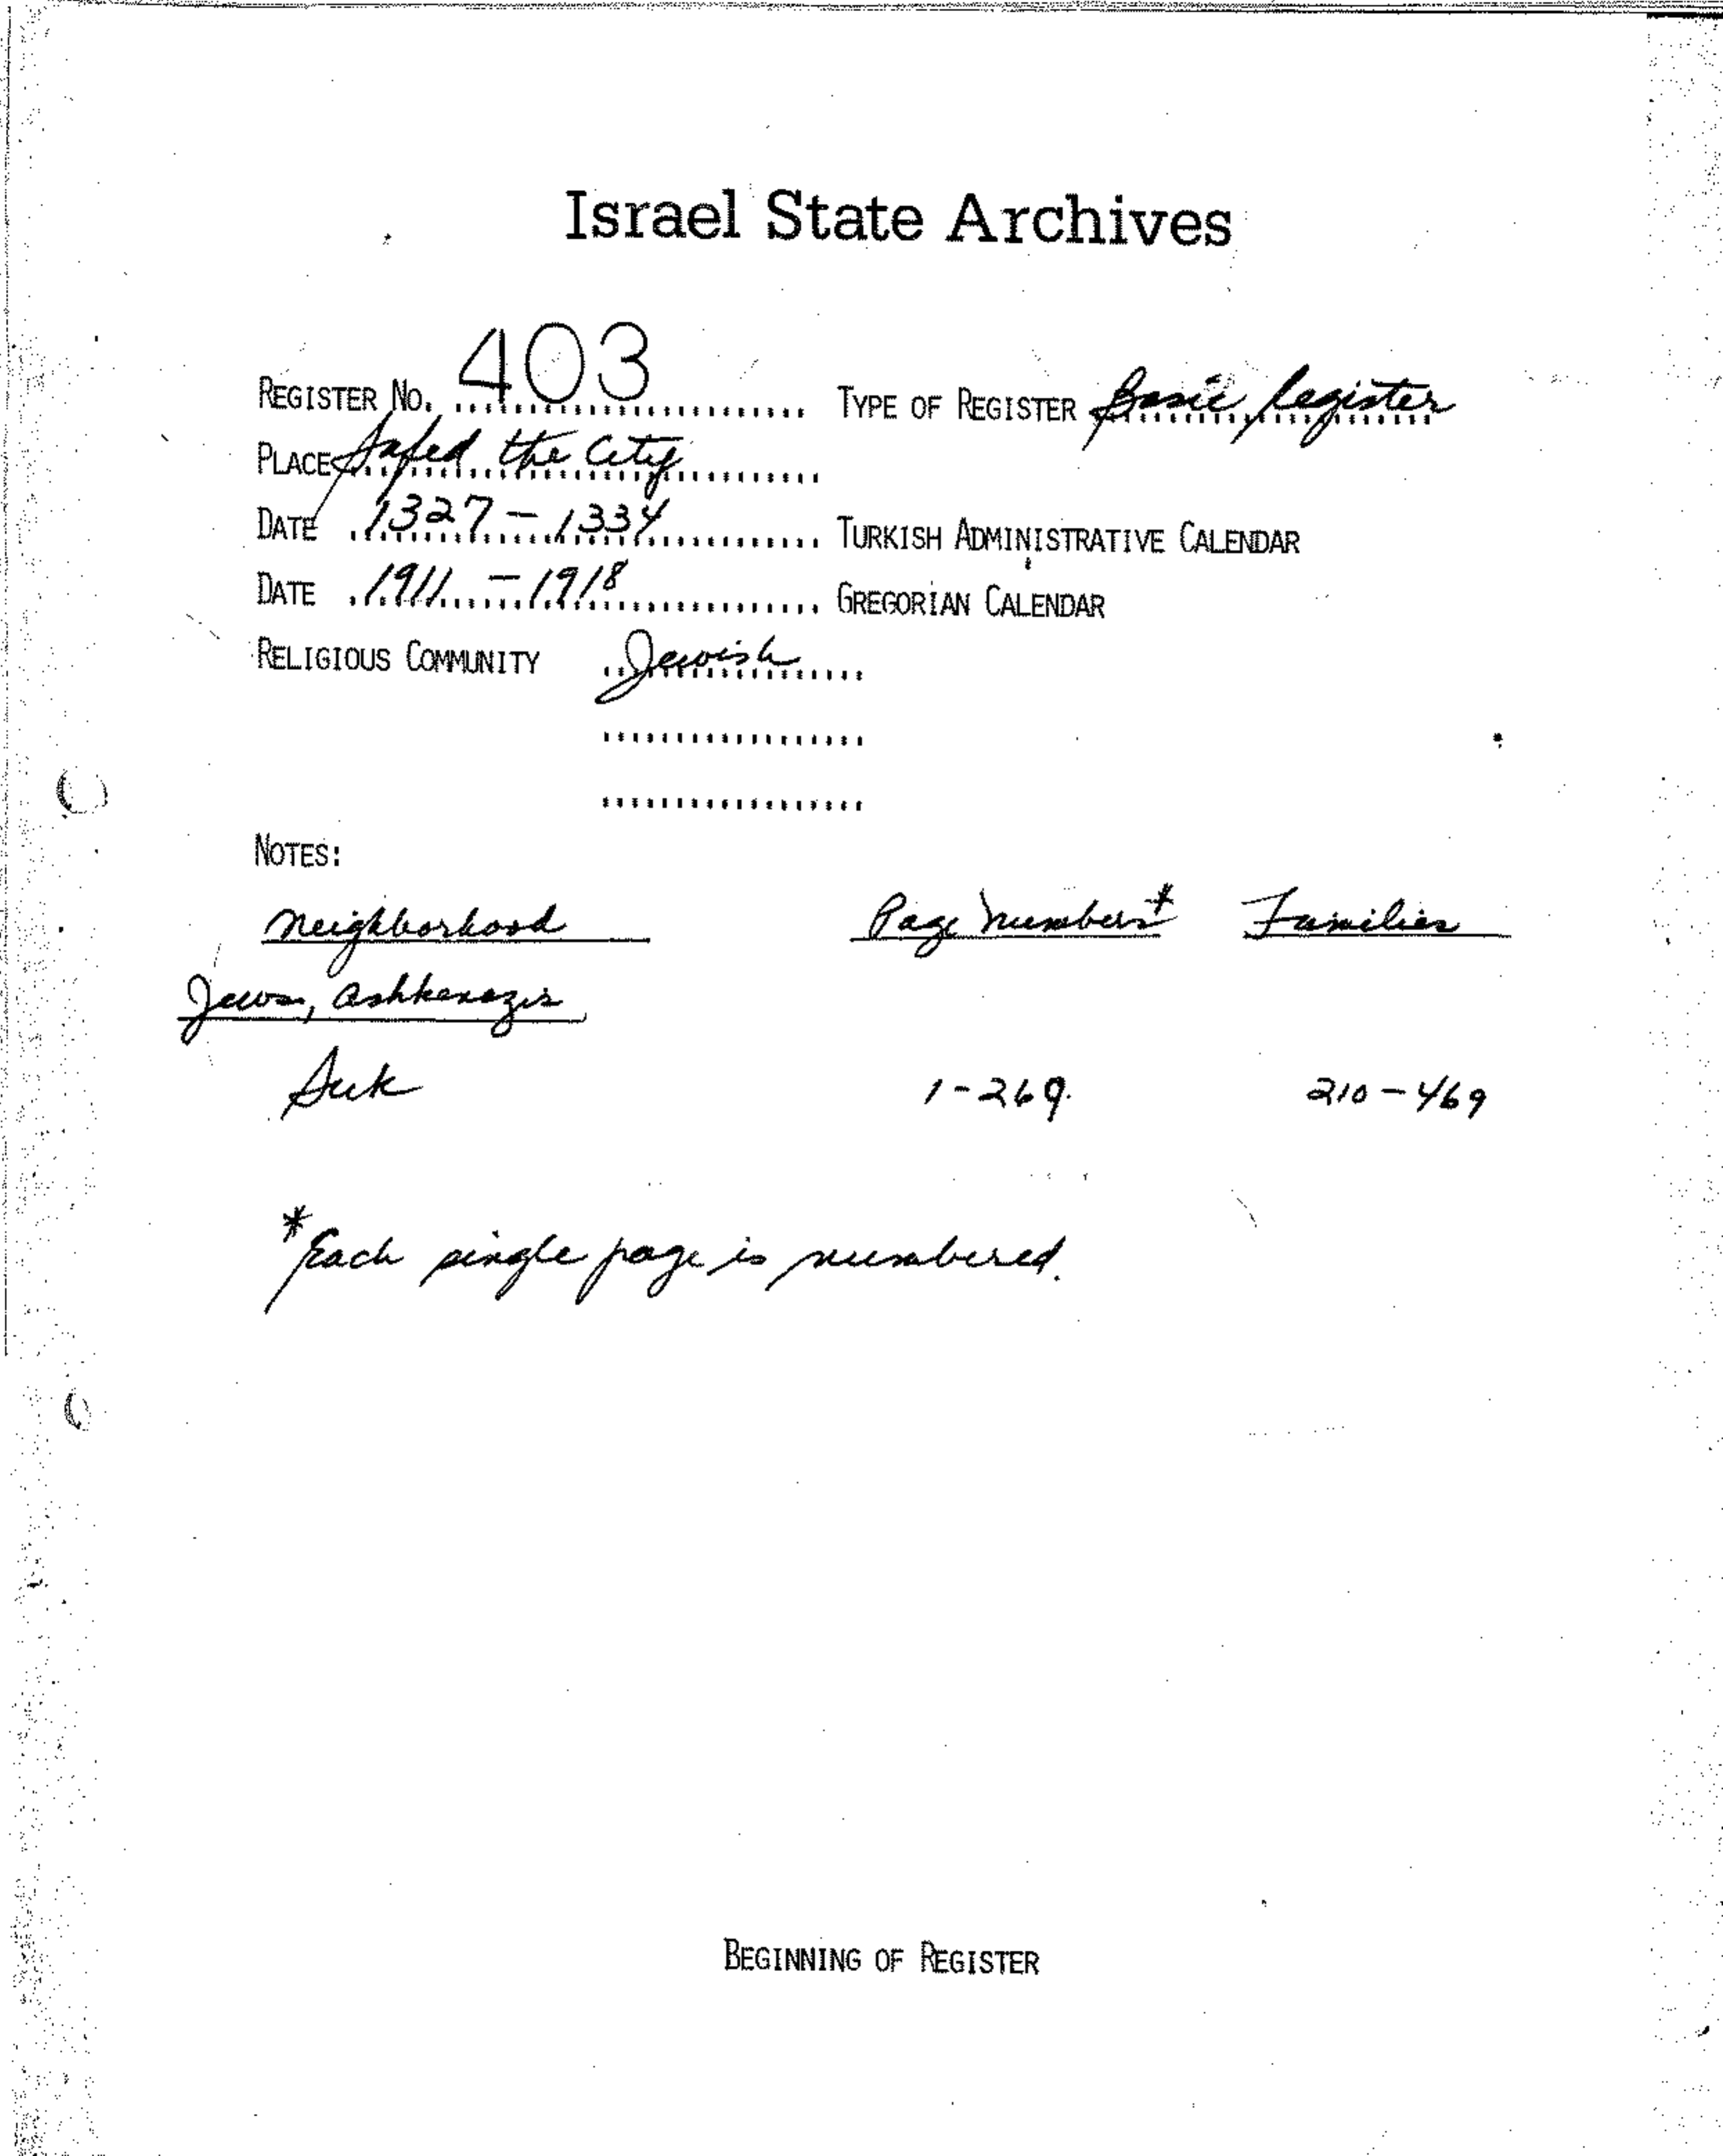 Israel State Archives
REGISTER NO. 403 TYPE OF REGISTER Basic register
PLACE Safed the City
DATE 1327 - 1334 TURKISH ADMINISTRATIVE CALENDAR
DATE 1911 - 1918 GREGORIAN CALENDAR
RELIGIOUS COMMUNITY Jewish
NOTES:
Neighborhood Page Numbers* Families
Jews, Ashkenazis
Suk 1-269 210-469
*Each single page is numbered.
BEGINNING OF REGISTER